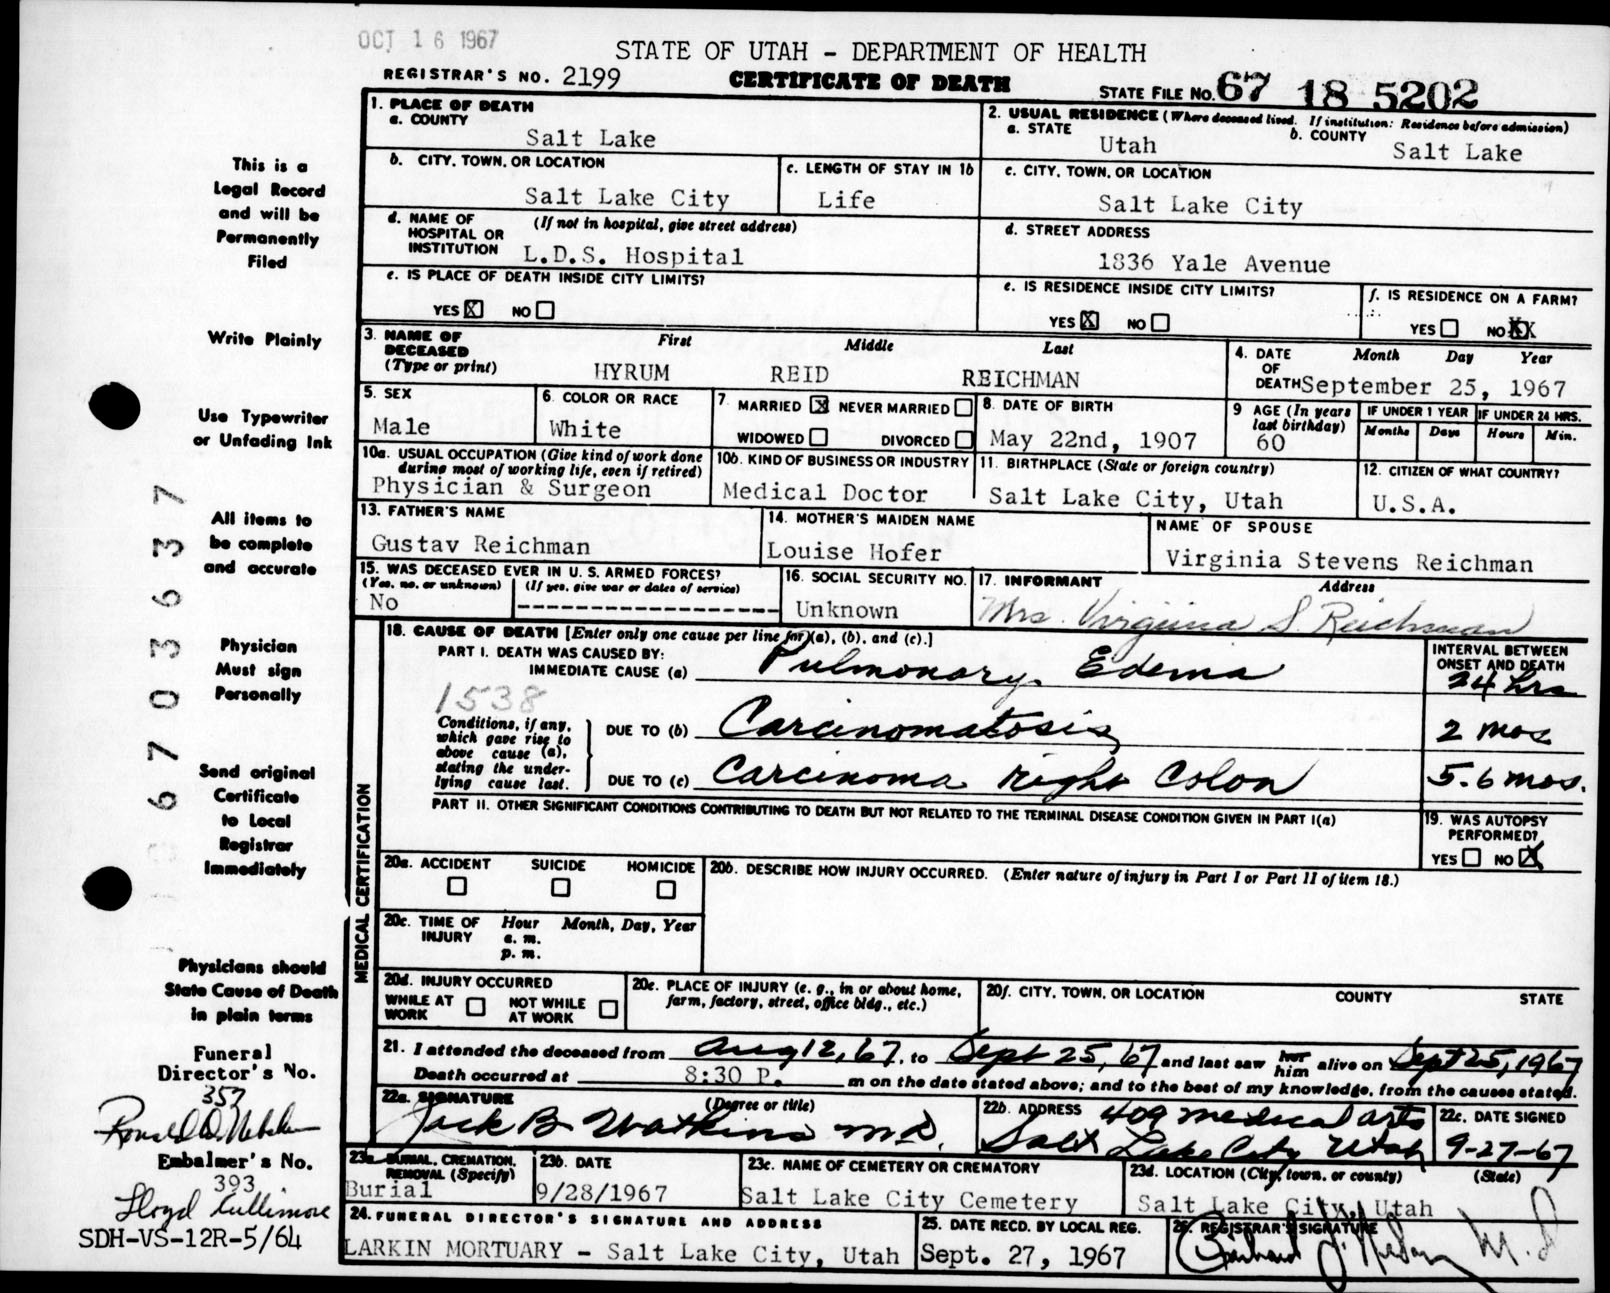 OCT 16 1967
STATE OF UTAH - DEPARTMENT OF HEALTH
REGISTRAR'S NO. 2199
CERTIFICATE OF DEATH
STATE FILE NO. 67 18 5202
This is a
Legal Record
and will be
Permanently
Filed
Write Plainly
Use Typewriter
or Unfading Ink
All items to
be complete
and accurate
Physician
Must sign
Personally
Send original
Certificate
to Local
Registrar
Immediately
Physicians should
State Cause of Death
in plain terms
Funeral
Director's No.
357
Embalmer's No.
393
Lloyd Cullimore
SDH-VS-12R-5/64
6703637
1. PLACE OF DEATH
a. COUNTY
Salt Lake
2. USUAL RESIDENCE (Where deceased lived. If institution: Residence before admission)
a. STATE
Utah
b. COUNTY
Salt Lake
b. CITY, TOWN, OR LOCATION
Salt Lake City
c. LENGTH OF STAY IN 1b
Life
c. CITY, TOWN, OR LOCATION
Salt Lake City
d. NAME OF HOSPITAL OR INSTITUTION
(If not in hospital, give street address)
L.D.S. Hospital
d. STREET ADDRESS
1836 Yale Avenue
e. IS PLACE OF DEATH INSIDE CITY LIMITS?
YES X NO
e. IS RESIDENCE INSIDE CITY LIMITS?
YES X NO
f. IS RESIDENCE ON A FARM?
YES NO XX
3. NAME OF DECEASED (Type or print)
First Middle Last
HYRUM REID REICHMAN
4. DATE OF DEATH
Month Day Year
September 25, 1967
5. SEX
Male
6. COLOR OR RACE
White
7. MARRIED X NEVER MARRIED
WIDOWED DIVORCED
8. DATE OF BIRTH
May 22nd, 1907
9 AGE (In years last birthday)
60
IF UNDER 1 YEAR
Months Days
IF UNDER 24 HRS.
Hours Min.
10a. USUAL OCCUPATION (Give kind of work done during most of working life, even if retired)
Physician & Surgeon
10b. KIND OF BUSINESS OR INDUSTRY
Medical Doctor
11. BIRTHPLACE (State or foreign country)
Salt Lake City, Utah
12. CITIZEN OF WHAT COUNTRY?
U.S.A.
13. FATHER'S NAME
Gustav Reichman
14. MOTHER'S MAIDEN NAME
Louise Hofer
NAME OF SPOUSE
Virginia Stevens Reichman
15. WAS DECEASED EVER IN U. S. ARMED FORCES?
(Yes, no, or unknown) (If yes, give war or dates of service)
No
16. SOCIAL SECURITY NO.
Unknown
17. INFORMANT Address
Mrs. Virginia S. Reichman
MEDICAL CERTIFICATION
18. CAUSE OF DEATH [Enter only one cause per line for (a), (b), and (c).]
PART I. DEATH WAS CAUSED BY:
IMMEDIATE CAUSE (a) Pulmonary Edema
INTERVAL BETWEEN ONSET AND DEATH
24 hrs
1538
Conditions, if any, which gave rise to above cause (a), stating the underlying cause last.
DUE TO (b) Carcinomatosis
2 mos
DUE TO (c) Carcinoma right Colon
5-6 mos.
PART II. OTHER SIGNIFICANT CONDITIONS CONTRIBUTING TO DEATH BUT NOT RELATED TO THE TERMINAL DISEASE CONDITION GIVEN IN PART I(a)
19. WAS AUTOPSY PERFORMED?
YES NO X
20a. ACCIDENT SUICIDE HOMICIDE
20b. DESCRIBE HOW INJURY OCCURRED. (Enter nature of injury in Part I or Part II of item 18.)
20c. TIME OF INJURY
Hour Month, Day, Year
a. m.
p. m.
20d. INJURY OCCURRED
WHILE AT WORK NOT WHILE AT WORK
20e. PLACE OF INJURY (e. g., in or about home, farm, factory, street, office bldg., etc.)
20f. CITY, TOWN, OR LOCATION COUNTY STATE
21. I attended the deceased from Aug 12, 67, to Sept 25, 67 and last saw her him alive on Sept 25, 1967
Death occurred at 8:30 P. m on the date stated above; and to the best of my knowledge, from the causes stated.
22a. SIGNATURE (Degree or title)
Jack B Watkins M.D.
22b. ADDRESS 409 Medical Arts
Salt Lake City Utah
22c. DATE SIGNED
9-27-67
23a. BURIAL, CREMATION, REMOVAL (Specify)
Burial
23b. DATE
9/28/1967
23c. NAME OF CEMETERY OR CREMATORY
Salt Lake City Cemetery
23d. LOCATION (City, town, or county) (State)
Salt Lake City, Utah
24. FUNERAL DIRECTOR'S SIGNATURE AND ADDRESS
LARKIN MORTUARY - Salt Lake City, Utah
25. DATE RECD. BY LOCAL REG.
Sept. 27, 1967
26. REGISTRAR'S SIGNATURE
M.D